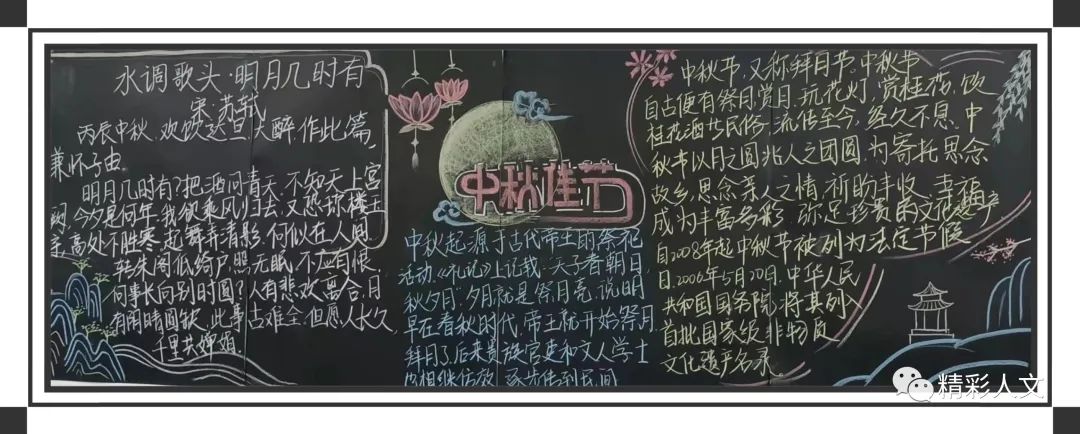 水调歌头·明月几时有
宋·苏轼
丙辰中秋,欢饮达旦,大醉,作此篇,
兼怀子由。
明月几时有?把酒问青天。不知天上宫
阙,今夕是何年。我欲乘风归去,又恐琼楼玉
宇,高处不胜寒。起舞弄清影,何似在人间。
转朱阁,低绮户,照无眠。不应有恨,
何事长向别时圆?人有悲欢离合,月
有阴晴圆缺,此事古难全。但愿人长久,
千里共婵娟。
中秋佳节
中秋起源于古代帝王的祭祀
活动。《礼记》上记载:天子春朝日,
秋夕月。夕月就是祭月亮,说明
早在春秋时代,帝王就开始祭月、
拜月了。后来贵族官吏和文人学士
也相继仿效,逐步传到民间
中秋节,又称拜月节。中秋节
自古便有祭月、赏月、玩花灯、赏桂花、饮
桂花酒等民俗,流传至今,经久不息。中
秋节以月之圆兆人之团圆,为寄托思念
故乡,思念亲人之情,祈盼丰收、幸福,
成为丰富多彩、弥足珍贵的文化遗产
自2008年起中秋节被列为法定节假
日。2006年5月20日,中华人民
共和国国务院将其列入
首批国家级非物质
文化遗产名录。
精彩人文